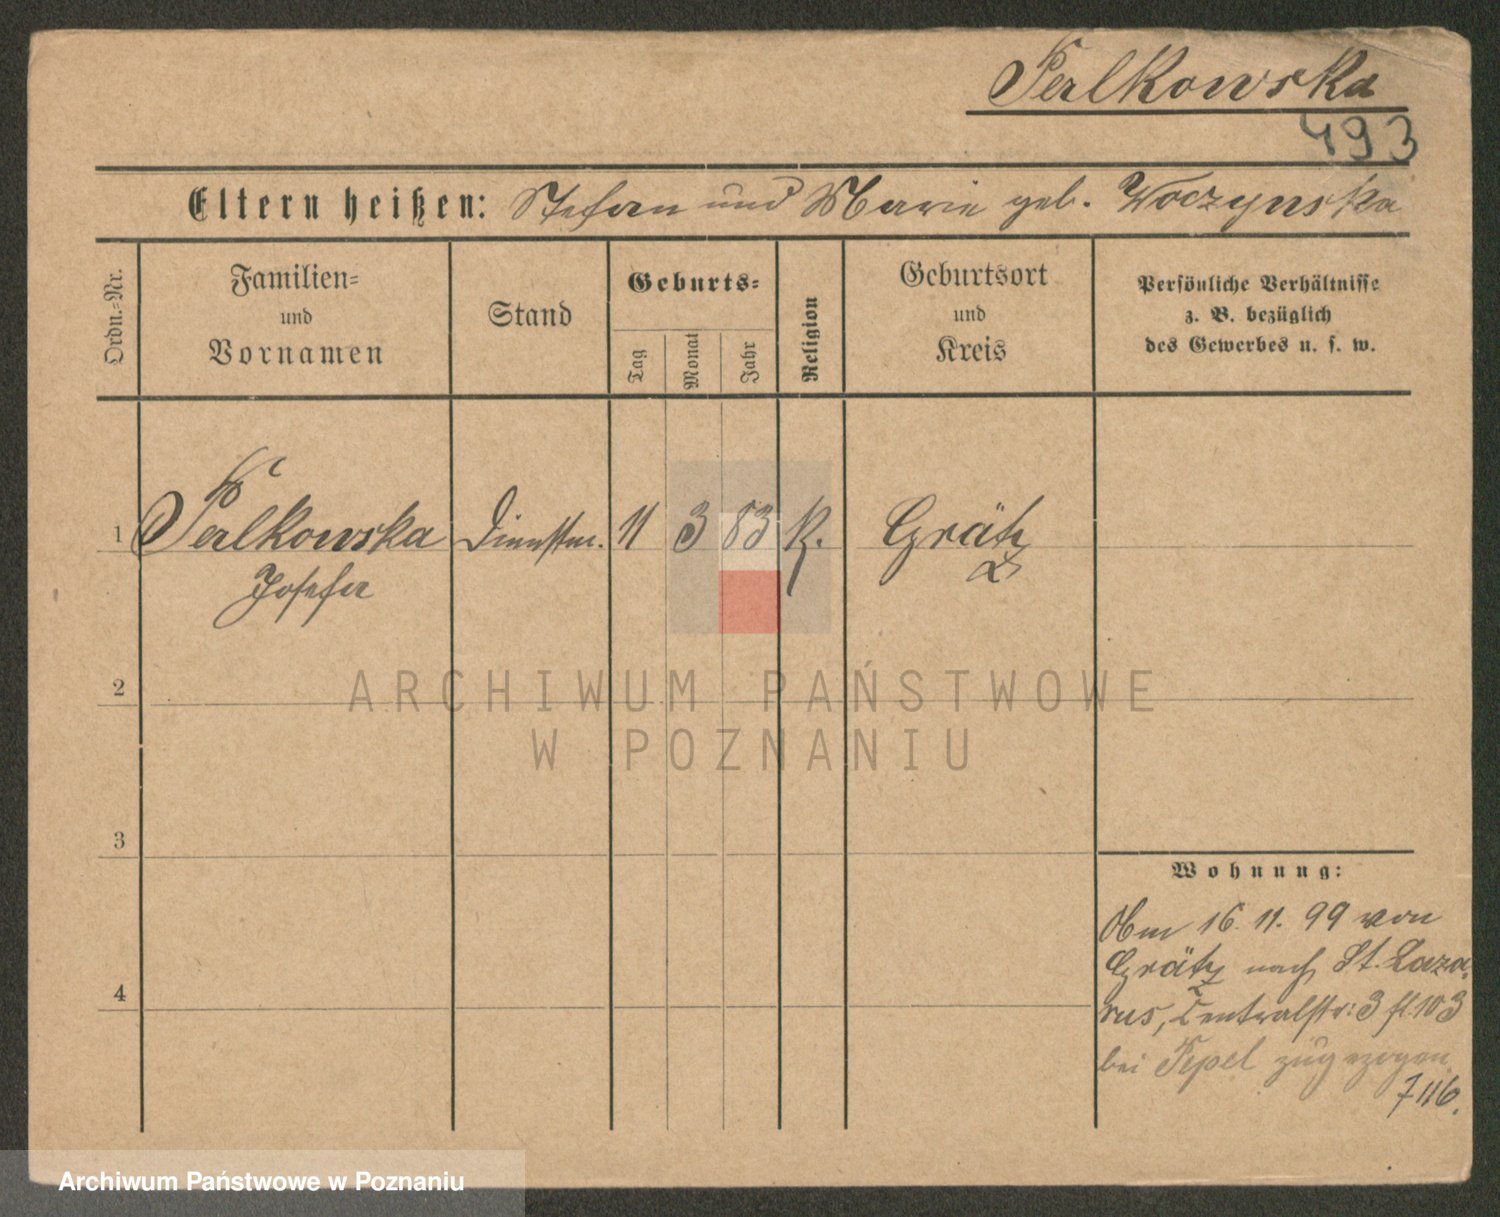 Perlkowska
493
Eltern heißen: Stefan und Marie geb. Woczynska
Ordn.-Nr.
Familien-
und
Vornamen
Stand
Geburts-
Tag
Monat
Jahr
Religion
Geburtsort
und
Kreis
Persönliche Verhältnisse
z. B. bezüglich
des Gewerbes u. s. w.
1 Perlkowska Dienstm. 11 3 83 K. Grätz
Josefa
2
ARCHIWUM PAŃSTWOWE
W POZNANIU
3
4
Wohnung:
Am 16. 11. 99 von
Grätz nach St. Laza-
rus, Centralstr: 3
bei Pepel zugezogen
7116.
Archiwum Państwowe w Poznaniu